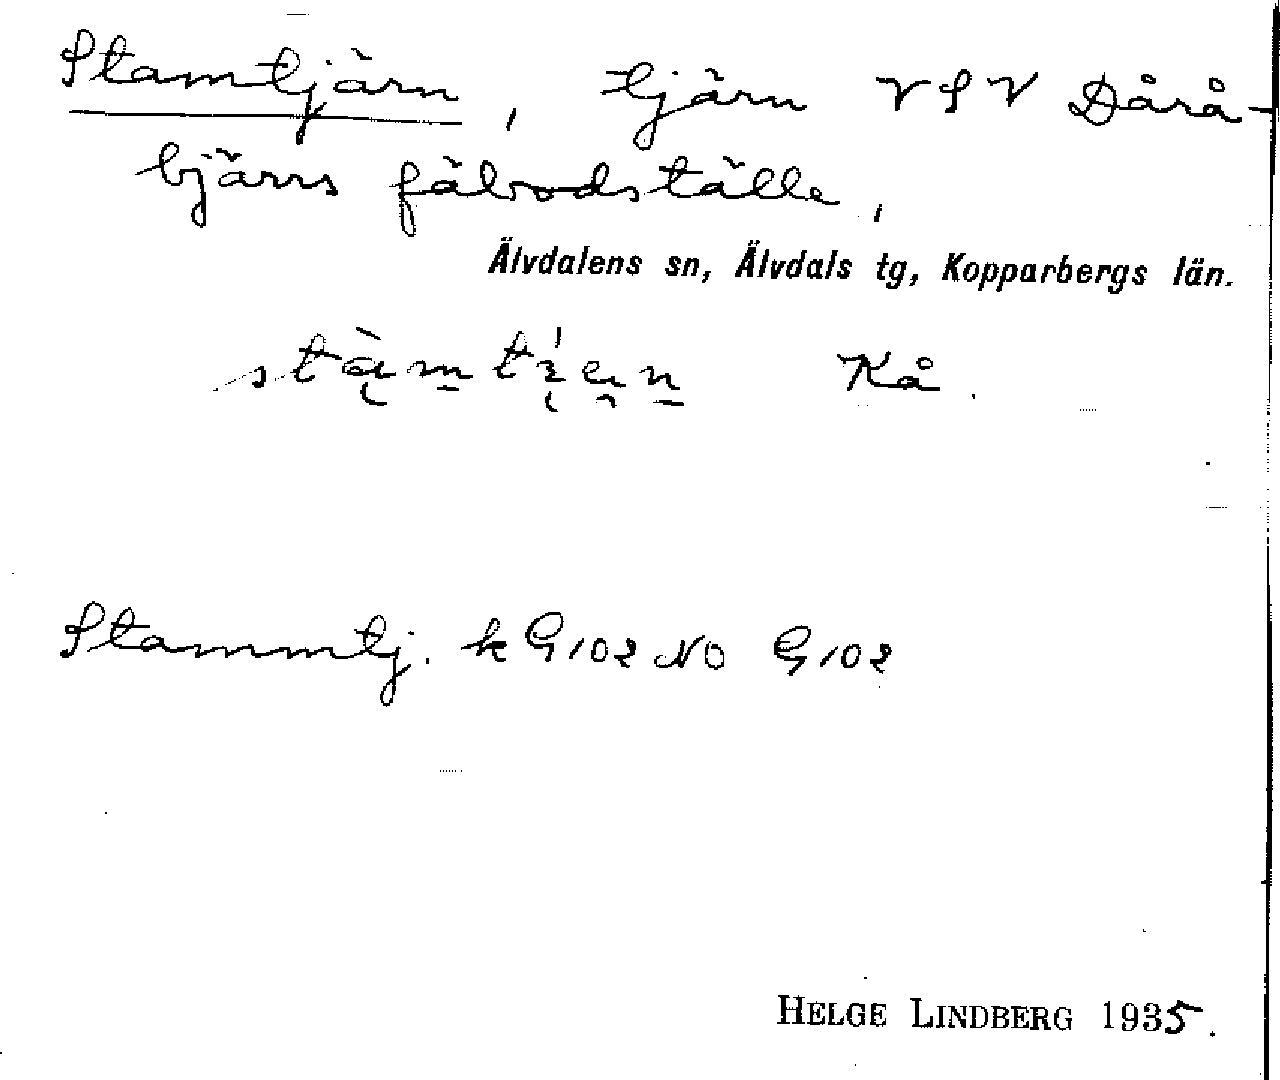 Stamtjärn, tjärn VSV Dårå-
bjärrs fäbodställe,
Älvdalens sn, Älvdals tg, Kopparbergs län.
Kå.
Stammtj. k G102 NO G102
HELGE LINDBERG 1935.